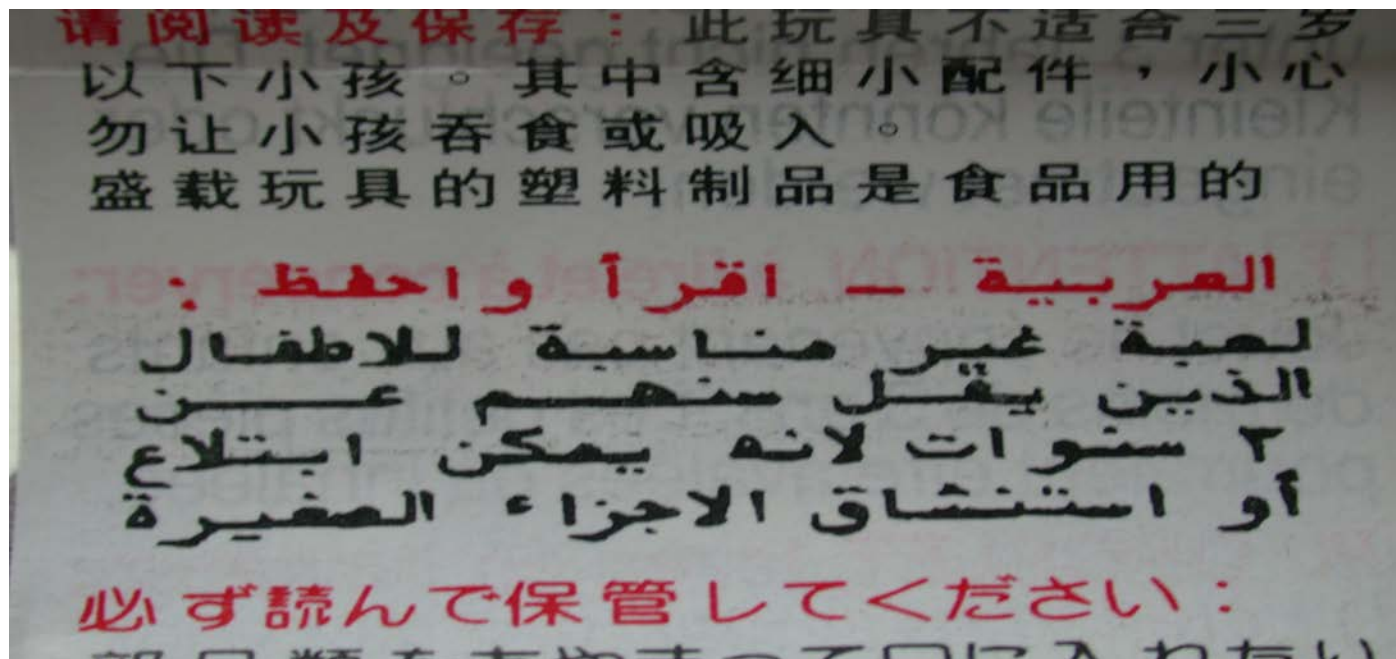 请阅读及保存：此玩具不适合三岁
以下小孩。其中含细小配件，小心
勿让小孩吞食或吸入。
盛载玩具的塑料制品是食品用的
العربية – اقرأ واحفظ :
لعبة غير مناسبة للاطفال
الذين يقل سنهم عن
٣ سنوات لانه يمكن ابتلاع
أو استنشاق الاجزاء الصغيرة
必ず読んで保管してください：